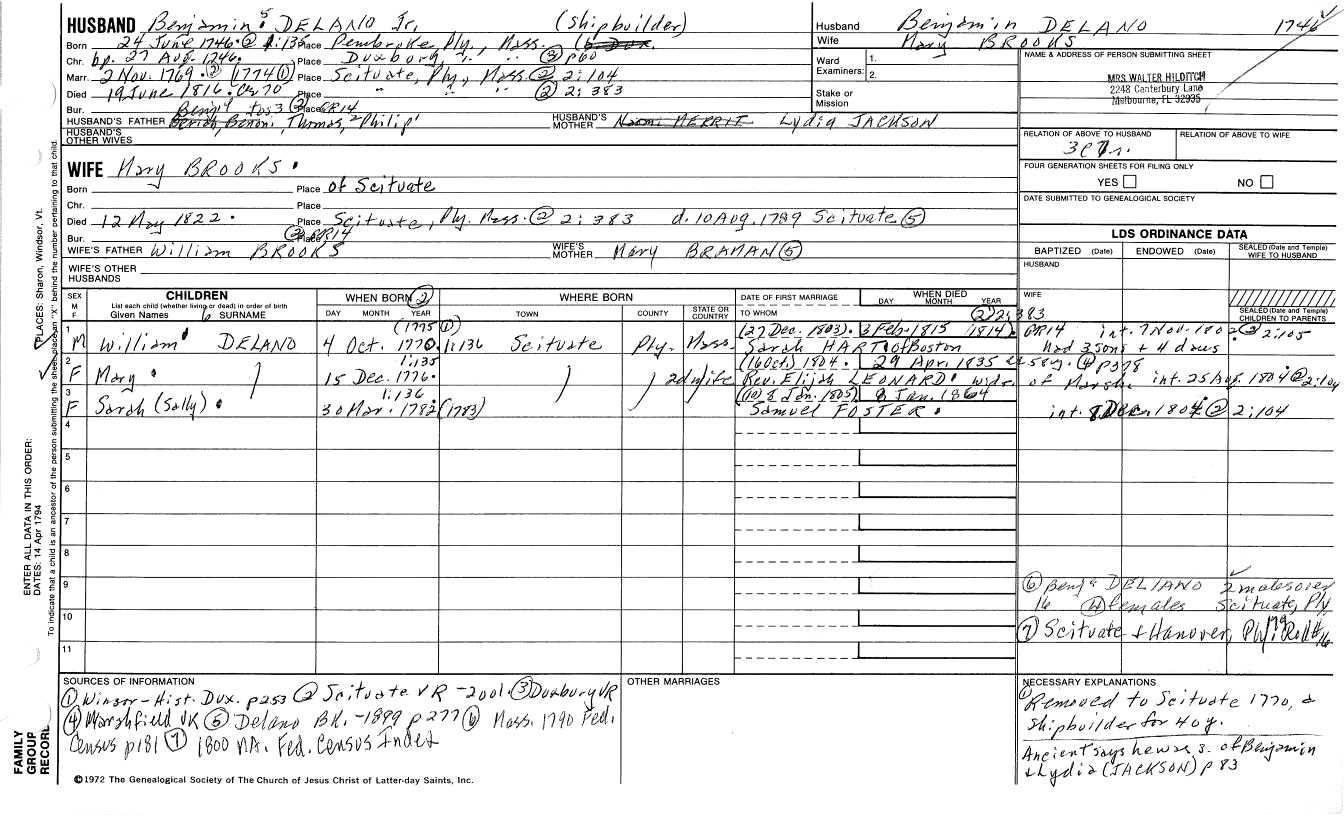 HUSBAND Benjamin 5 DELANO Jr. (shipbuilder)
Born 24 June 1746. ② 1:135 Place Pembroke, Ply., Mass.
Chr. bp. 27 Aug. 1746. Place Duxbury, " " ③ p60
Marr. 2 Nov. 1769. ② (1774 ①) Place Scituate, Ply., Mass. ② 2:104
Died 19 June 1816. Place " " " ② 2:383
Bur. ② Place GR14
HUSBAND'S FATHER Benoni, Thomas, 2 Philip 1
HUSBAND'S MOTHER Lydia JACKSON
HUSBAND'S OTHER WIVES
Husband Benjamin DELANO 1746
Wife Mary BROOKS
Ward Examiners: 1.
2.
Stake or Mission
NAME & ADDRESS OF PERSON SUBMITTING SHEET
MRS WALTER HILDITCH
2248 Canterbury Lane
Melbourne, FL 32935
RELATION OF ABOVE TO HUSBAND
RELATION OF ABOVE TO WIFE
FOUR GENERATION SHEETS FOR FILING ONLY
YES NO
DATE SUBMITTED TO GENEALOGICAL SOCIETY
WIFE Mary BROOKS.
Born Place of Scituate
Chr. Place
Died 12 May 1822. Place Scituate, Ply. Mass. ② 2:383 d. 10 Aug. 1789 Scituate ⑤
Bur. ② Place GR14
WIFE'S FATHER William BROOKS
WIFE'S MOTHER Mary BRAMAN ⑤
WIFE'S OTHER HUSBANDS
LDS ORDINANCE DATA
BAPTIZED (Date) ENDOWED (Date) SEALED (Date and Temple) WIFE TO HUSBAND
HUSBAND
WIFE
SEALED (Date and Temple) CHILDREN TO PARENTS
SEX M F
CHILDREN
List each child (whether living or dead) in order of birth
Given Names 6 SURNAME
WHEN BORN ②
DAY MONTH YEAR
WHERE BORN
TOWN COUNTY STATE OR COUNTRY
DATE OF FIRST MARRIAGE
TO WHOM
WHEN DIED
DAY MONTH YEAR
② 2:383
1 M William DELANO 4 Oct. 1770. 1:136 (1775 ①) Scituate Ply. Mass.
(27 Dec. 1803). 3 Feb. 1815 (1814). GR14 int. 7 Nov. 1802 ② 2:105
Sarah HART of Boston had 3 sons + 4 daus
2 F Mary. 15 Dec. 1776. 1:135 2d wife
(16 Oct.) 1804. 29 Apr. 1835 ④ p378
Rev. Elijah LEONARD int. 25 Aug. 1804 ② 2:104
3 F Sarah (Sally). 30 Mar. 1782 (1783) 1:136
8 Jan. 1805) 8 Jan. 1864
Samuel FOSTER. int. 8 Dec. 1804 ② 2:104
4
5
6
7
8
9
10
11
⑥ Benjn DELANO 2 males over
16 ④ females Scituate, Ply
⑦ Scituate + Hanover, Ply
SOURCES OF INFORMATION
① Winsor-Hist. Dux. p253 ② Scituate VR -2001. ③ Duxbury VR
④ Marshfield VR ⑤ Delano BK. -1899 p277 ⑥ Mass. 1790 Fed.
Census p181 ⑦ 1800 MA. Fed. Census Index
OTHER MARRIAGES
NECESSARY EXPLANATIONS
① Removed to Scituate 1770, a
shipbuilder for 40 y.
Ancient says he was s. of Benjamin
+ Lydia (JACKSON) p 83
©1972 The Genealogical Society of The Church of Jesus Christ of Latter-day Saints, Inc.
FAMILY GROUP RECORD
ENTER ALL DATA IN THIS ORDER:
DATES: 14 Apr 1794
PLACES: Sharon, Windsor, Vt.
To indicate that a child is an ancestor of the person submitting the sheet, place an "X" behind the number pertaining to that child.